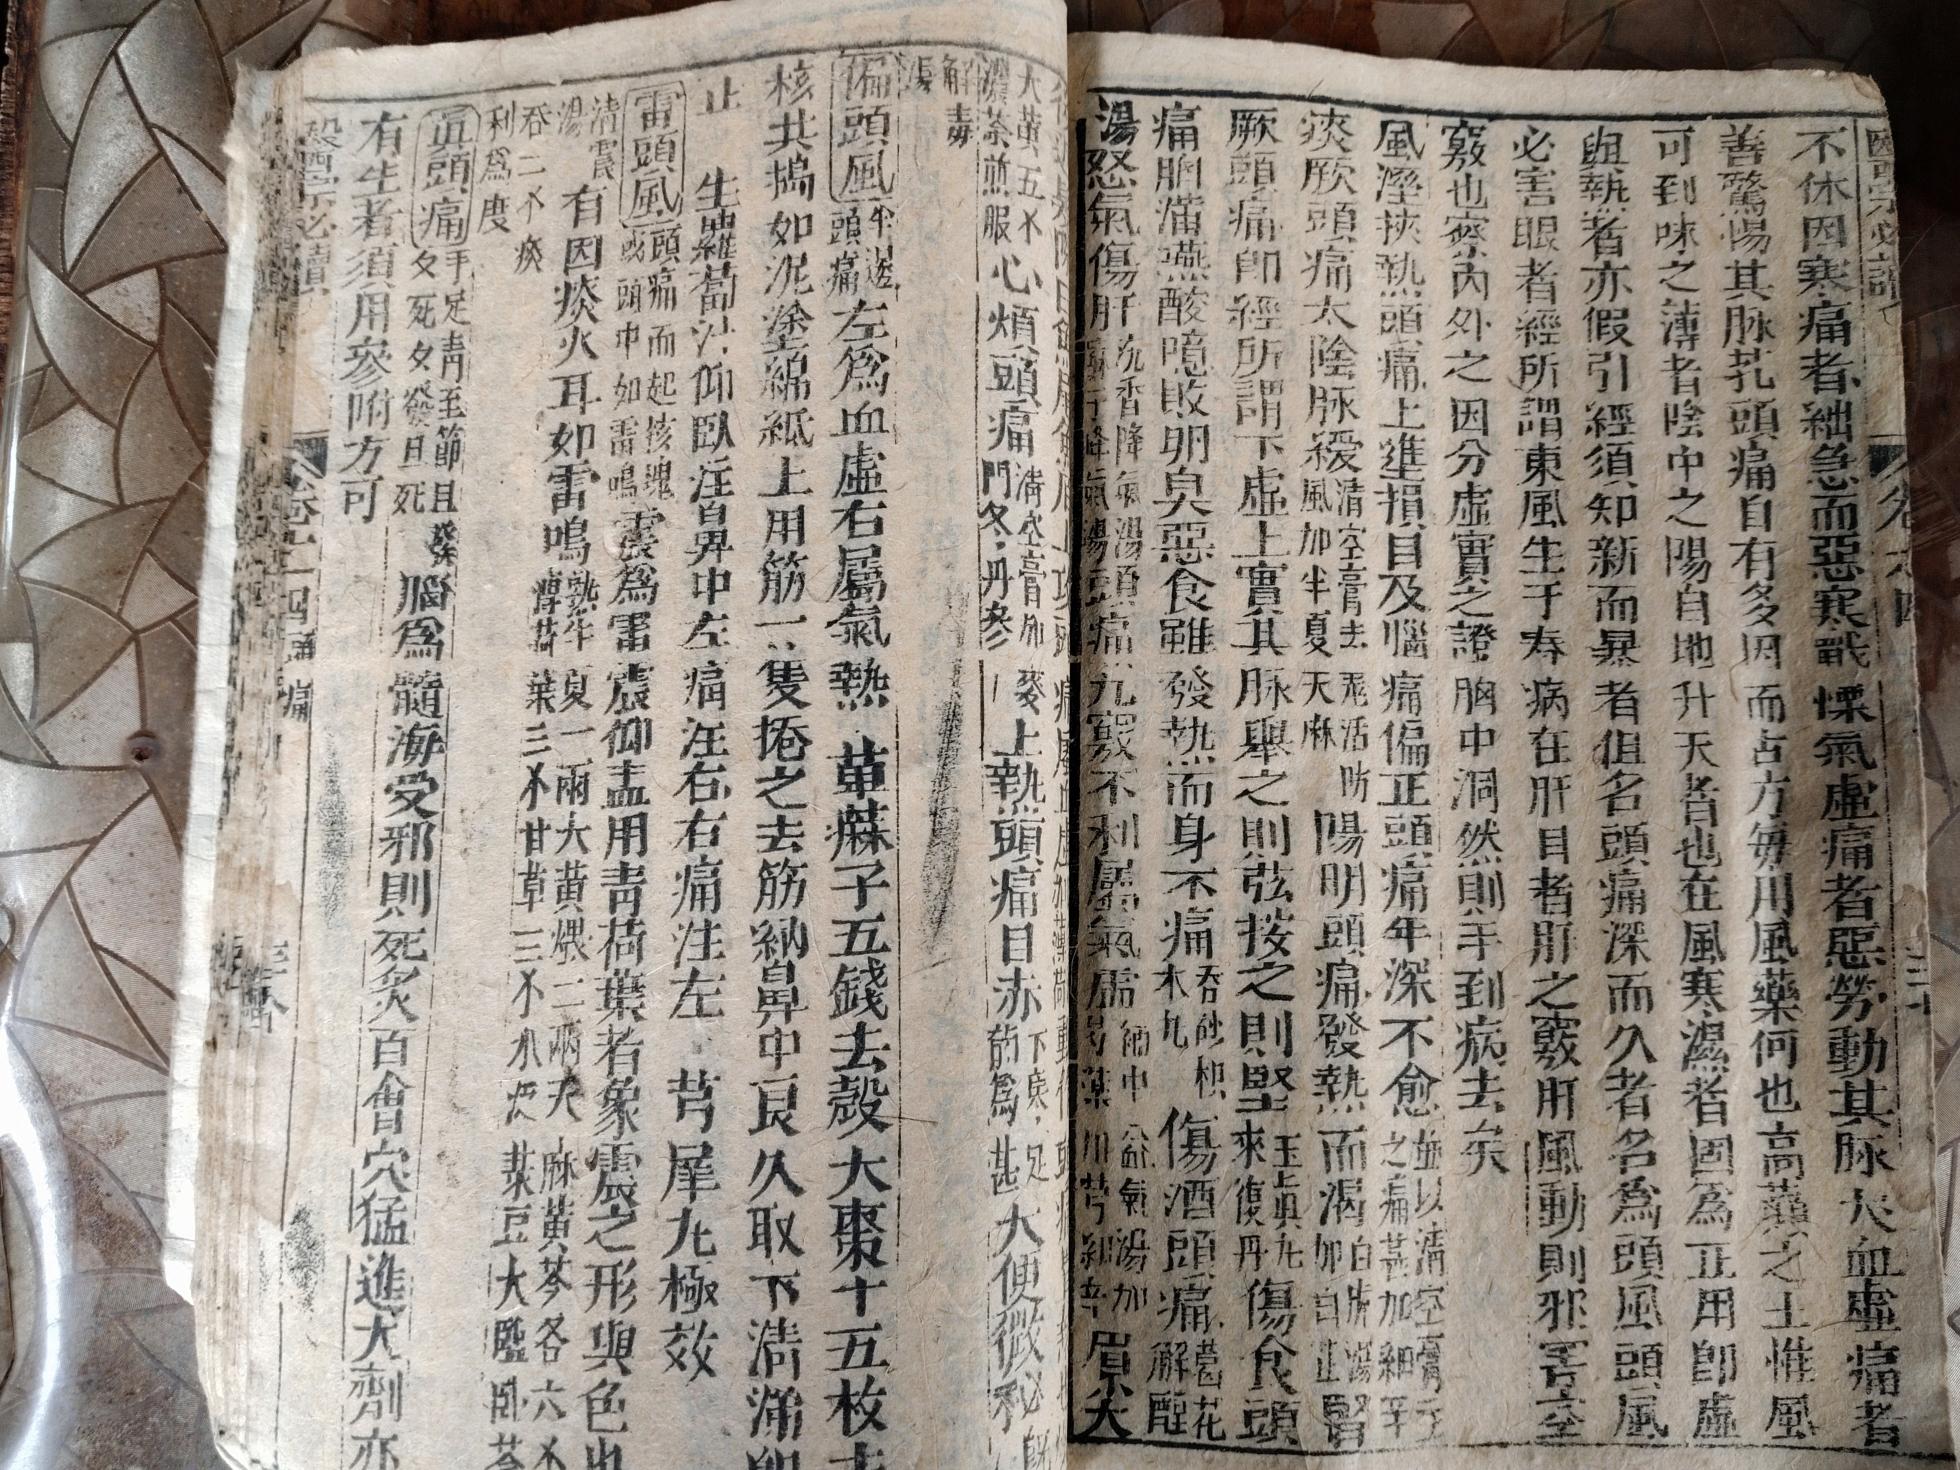 不休因寒痛者絀急而惡寒戰慄氣虛痛者惡勞動其脉大血虛痛者
善驚惕其脉芤頭痛自有多因而古方每用風藥何也高巔之上惟風
可到味之薄者陰中之陽自地升天者也在風寒濕者固為正用卽虛
與熱者亦假引經須知新而暴者但名頭痛深而久者名為頭風頭風
必害眼者經所謂東風生于春病在肝目者肝之竅肝風動則邪害空
竅也察內外之因分虛實之證胸中洞然則手到病去矣
風溼挾熱頭痛上進損目及腦痛偏正頭痛年深不愈並以清空膏主之痛甚加細辛
痰厥頭痛太陰脉緩清空膏去羌活防風加半夏天麻陽明頭痛發熱而渴白虎湯加白芷腎
厥頭痛卽經所謂下虛上實其脉舉之則弦按之則堅玉眞丸來復丹傷食頭
痛胸滿嚥酸噫敗卵臭惡食雖發熱而身不痛香砂枳术丸傷酒頭痛葛花解酲
湯怒氣傷肝沉香降氣湯頭痛九竅不利屬氣虛補中益氣湯加芍藥川芎細辛眉尖
大黃五分濃茶煎服心煩頭痛清空膏加麥門冬丹參上熱頭痛目赤下寒足䯒為甚大便微秘
解毒湯
偏頭風半邊頭痛左為血虛右屬氣熱蓖蔴子五錢去殼大棗十五枚去
核共搗如泥塗綿紙上用筋一隻捲之去筋納鼻中良久取下清涕卽
止生蘿蔔汁仰臥注鼻中左痛注右右痛注左芎犀丸極效
雷頭風頭痛而起核塊或頭中如雷鳴震為雷震仰盂用青荷葉者象震之形與色也
清震湯有因痰火耳如雷鳴熟半夏一兩大黃煨二兩天麻黃芩各六分薄荷葉三分甘草三分水泛菉豆大臨卧茶
吞二分痰利為度
眞頭痛手足青至節旦發夕死夕發旦死腦為髓海受邪則死灸百會穴猛進大劑亦
有生者須用參附方可
醫宗必讀 卷之四 頭痛